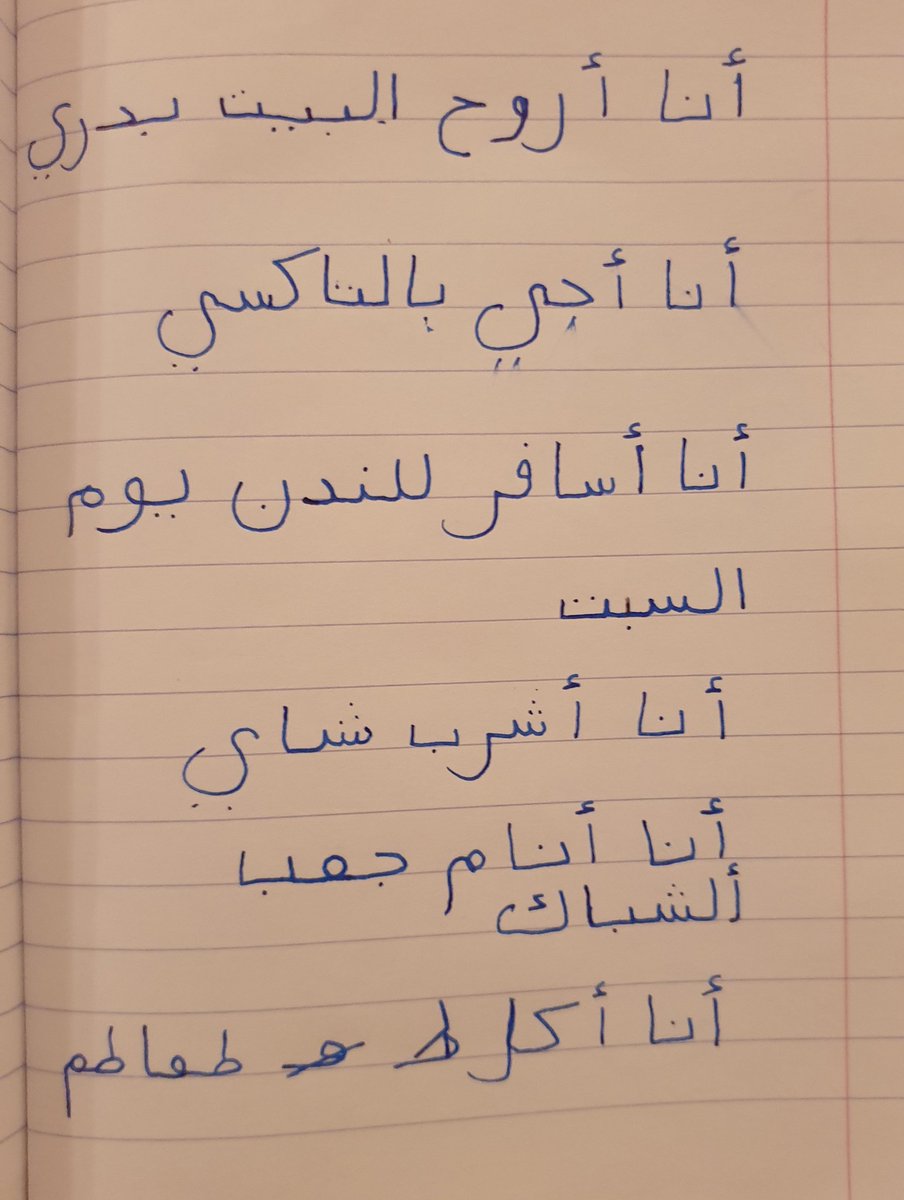 أنا أروح البيت بدري
أنا أجي بالتاكسي
أنا أسافر للندن يوم
السبت
أنا أشرب شاي
أنا أنام جمب
ألشباك
أنا أكل طماطم